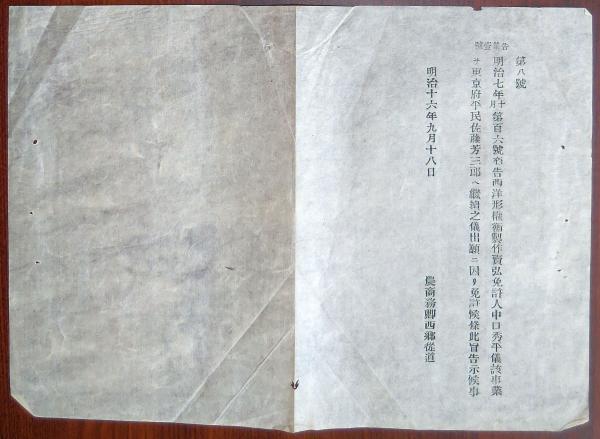 告第壹號
第八號
明治七年十月第百六號布告西洋形権衡製作賣弘免許人中口秀平儀該事業
ヲ東京府平民佐藤芳三郎ヘ繼續之儀出願ニ因リ免許候條此旨告示候事
明治十六年九月十八日
農商務卿西郷從道